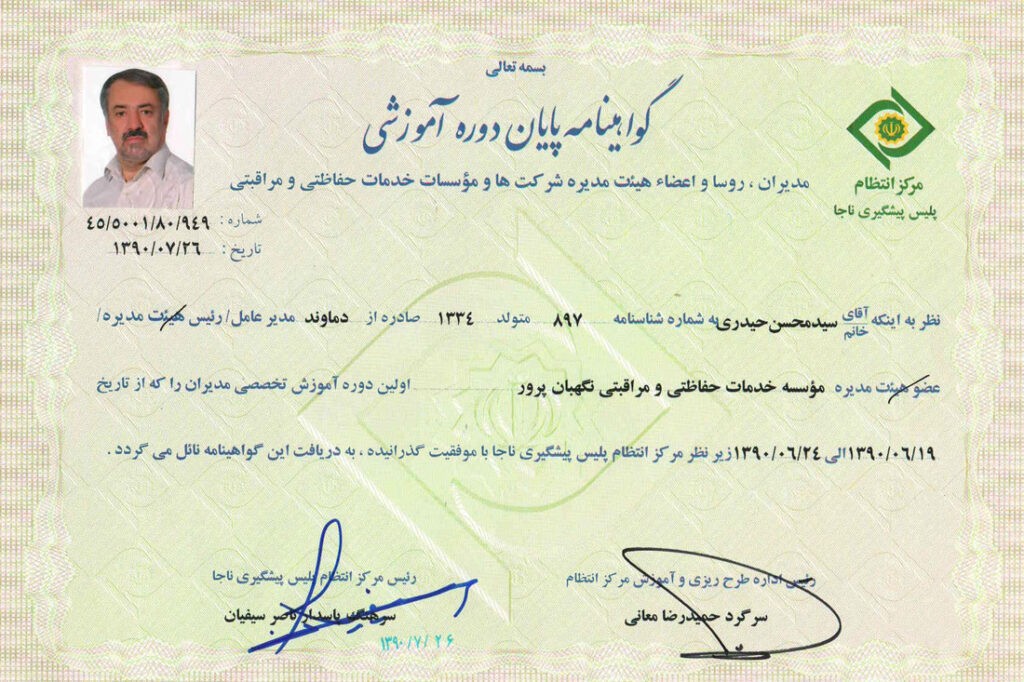 بسمه تعالی
گواهینامه پایان دوره آموزشی
مدیران ، روسا و اعضاء هیئت مدیره شرکت ها و مؤسسات خدمات حفاظتی و مراقبتی
مرکز انتظام
پلیس پیشگیری ناجا
شماره : ٤٥/٥٠٠١/٨٠/٩٤٩
تاریخ : ١٣٩٠/٠٧/٢٦
نظر به اینکه آقای/خانم سیدمحسن حیدری به شماره شناسنامه ٨٩٧ متولد ١٣٣٤ صادره از دماوند مدیر عامل/ رئیس هیئت مدیره/
عضو هیئت مدیره مؤسسه خدمات حفاظتی و مراقبتی نگهبان پرور اولین دوره آموزش تخصصی مدیران را که از تاریخ
١٣٩٠/٠٦/١٩ الی ١٣٩٠/٠٦/٢٤ زیر نظر مرکز انتظام پلیس پیشگیری ناجا با موفقیت گذرانیده ، به دریافت این گواهینامه نائل می گردد .
رئیس اداره طرح ریزی و آموزش مرکز انتظام
سرگرد حمیدرضا معانی
رئیس مرکز انتظام پلیس پیشگیری ناجا
سرهنگ پاسدار ناصر سیفیان
١٣٩٠/٧/٢٦